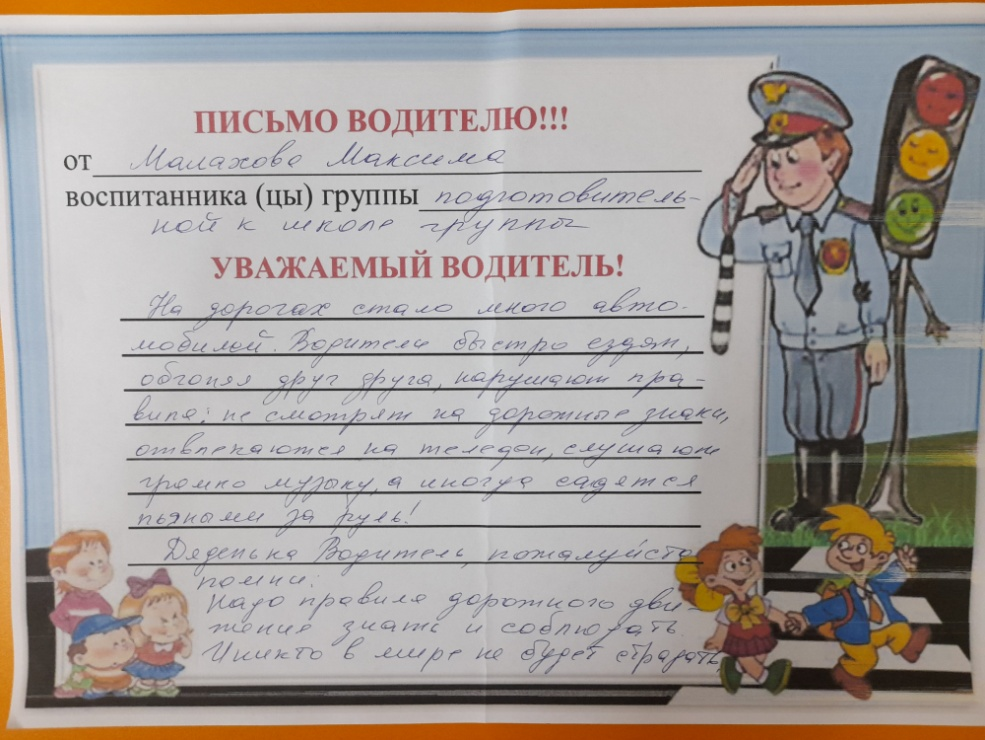 ПИСЬМО ВОДИТЕЛЮ!!!
от Малахова Максима
воспитанника (цы) группы подготовитель-
ной к школе группы
УВАЖАЕМЫЙ ВОДИТЕЛЬ!
На дорогах стало много авто-
мобилей. Водители быстро ездят,
обгоняя друг друга, нарушают пра-
вила: не смотрят на дорожные знаки,
отвлекаются на телефон, слушают
громко музыку, а иногда садятся
пьяными за руль!
Дяденька Водитель, пожалуйста
помни:
Надо правила дорожного дви-
жения знать и соблюдать.
И никто в мире не будет страдать,